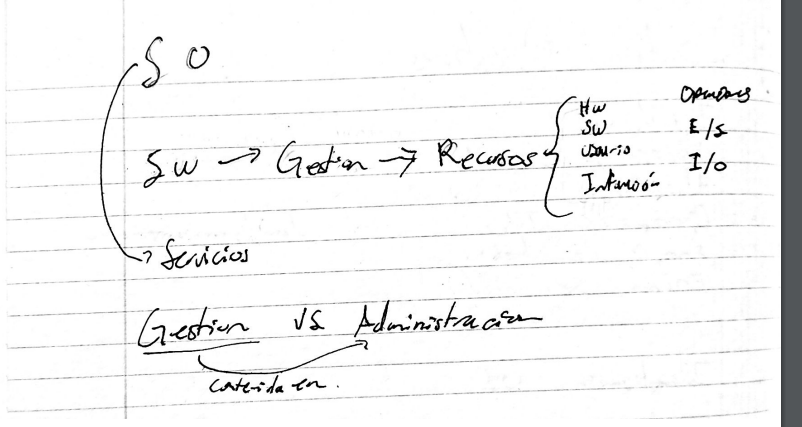 SO
SW → Gestion → Recursos {
HW
SW
usuario
Información
Opciones
E/S
I/O
→ Servicios
Gestion VS Administracion
contenida en.